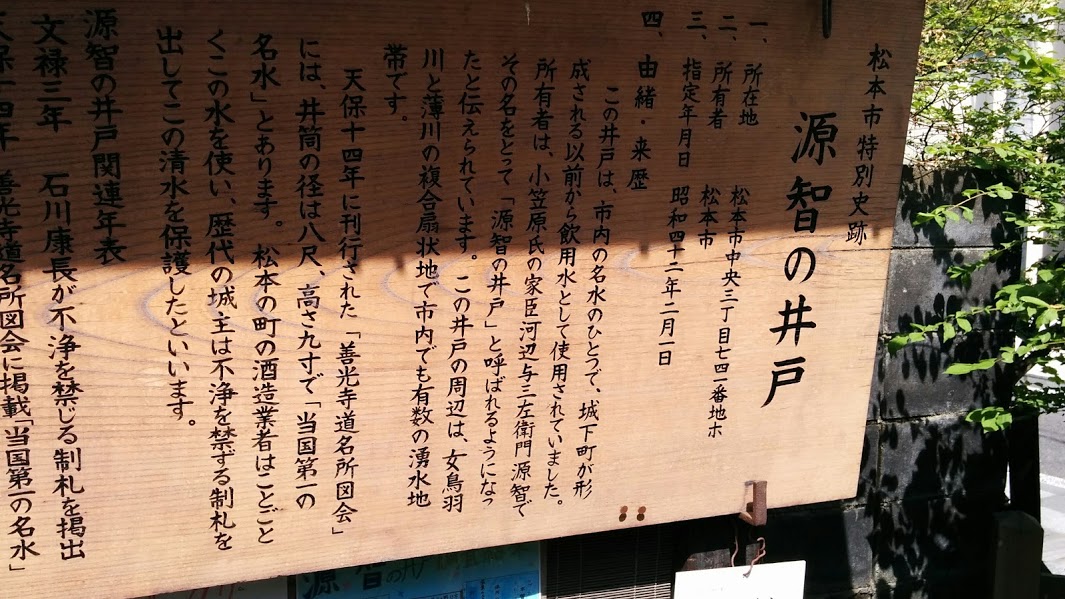 松本市特別史跡
源智の井戸
一、所在地 松本市中央三丁目七四一番地ホ
二、所有者 松本市
三、指定年月日 昭和四十二年二月一日
四、由緒・来歴
この井戸は、市内の名水のひとつで、城下町が形
成される以前から飲用水として使用されていました。
所有者は、小笠原氏の家臣河辺与三左衛門源智で
その名をとって「源智の井戸」と呼ばれるようになっ
たと伝えられています。この井戸の周辺は、女鳥羽
川と薄川の複合扇状地で市内でも有数の湧水地
帯です。
天保十四年に刊行された「善光寺道名所図会」
には、井筒の径は八尺、高さ九寸で「当国第一の
名水」とあります。松本の町の酒造業者はことごと
くこの水を使い、歴代の城主は不浄を禁ずる制札を
出してこの清水を保護したといいます。
源智の井戸関連年表
文禄三年 石川康長が不浄を禁じる制札を掲出
天保十四年 善光寺道名所図会に掲載「当国第一の名水」
源智の